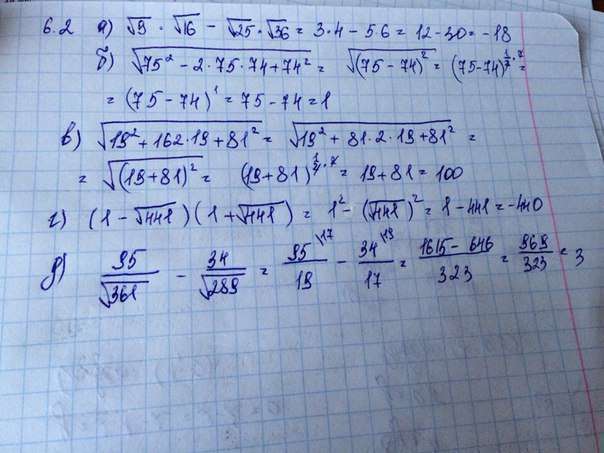 6.2 а) √9 · √16 − √25 · √36 = 3·4 − 5·6 = 12−30 = −18
б) √(75² − 2·75·74 + 74²) = √(75−74)² = (75−74)^(1/2·2) =
= (75−74)¹ = 75−74 = 1
в) √(19² + 162·19 + 81²) = √(19² + 81·2·19 + 81²) =
= √(19+81)² = (19+81)^(1/2·2) = 19+81 = 100
г) (1−√441)(1+√441) = 1² − (√441)² = 1−441 = −440
д) 95/√361 − 34/√289 = 95/19 \17 − 34/17 \19 = (1615−646)/323 = 969/323 = 3